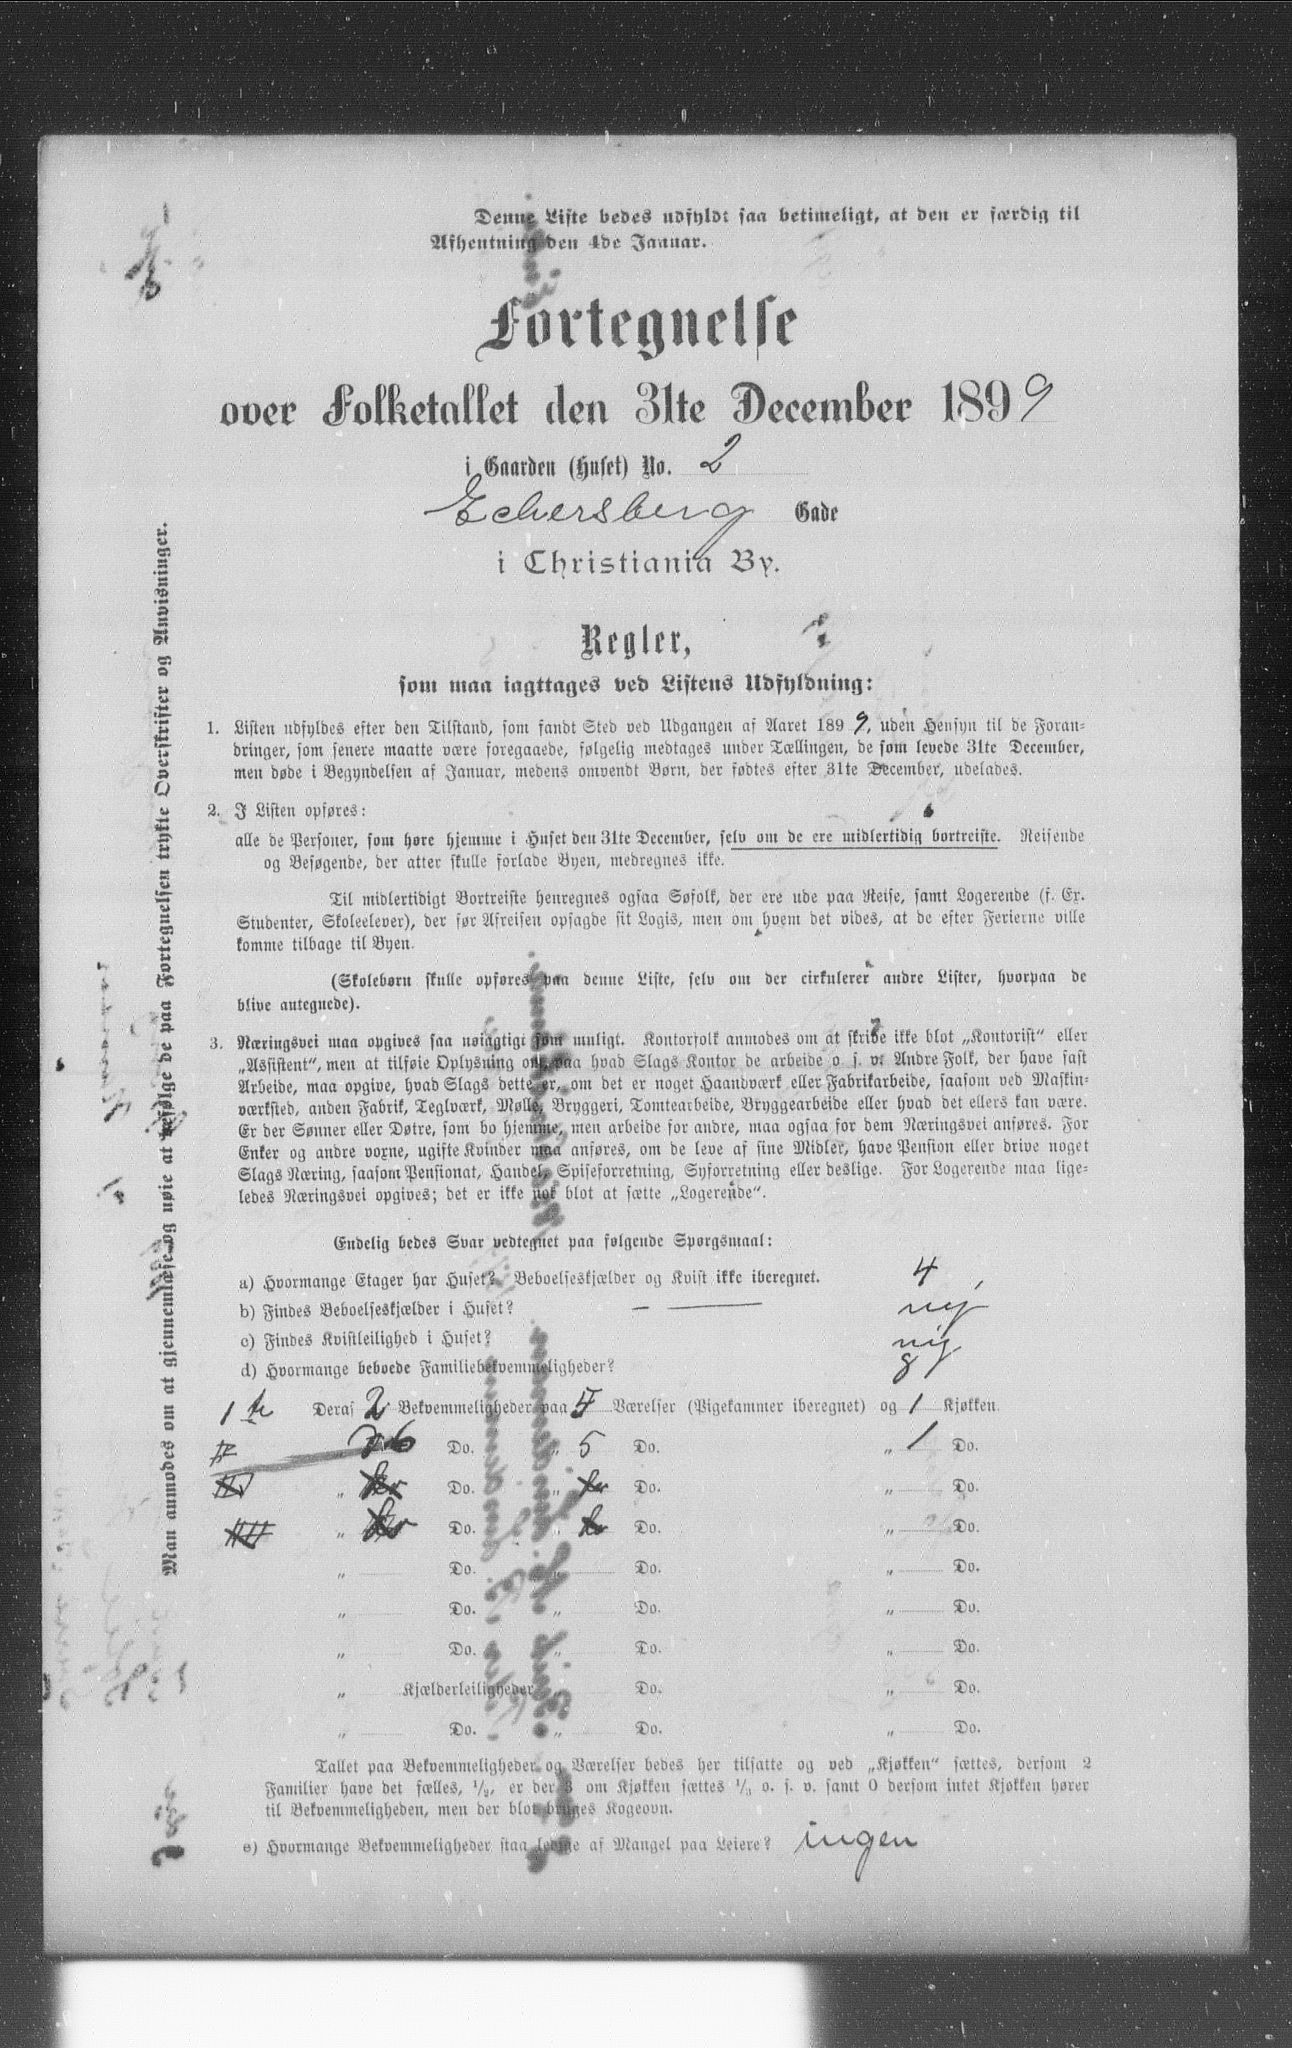 Denne Liste bedes udfyldt saa betimeligt, at den er færdig til
Afhentning den 4de Januar.
Fortegnelse
over Folketallet den 31te December 1899
i Gaarden (Huset) No. 2
Eckersberg Gade
i Christiania By.
Regler,
som maa iagttages ved Listens Udfyldning:
1. Listen udfyldes efter den Tilstand, som fandt Sted ved Udgangen af Aaret 1899, uden Hensyn til de Foran-
dringer, som senere maatte være foregaaede, følgelig medtages under Tællingen, de som levede 31te December,
men døde i Begyndelsen af Januar, medens omvendt Børn, der fødtes efter 31te December, udelades.
2. I Listen opføres:
alle de Personer, som høre hjemme i Huset den 31te December, selv om de ere midlertidig bortreiste. Reisende
og Besøgende, der atter skulle forlade Byen, medregnes ikke.
Til midlertidigt Bortreiste henregnes ogsaa Søfolk, der ere ude paa Reise, samt Logerende (f. Ex.
Studenter, Skoleelever), der før Afreisen opsagde sit Logis, men om hvem det vides, at de efter Ferierne ville
komme tilbage til Byen.
(Skolebørn skulle opføres paa denne Liste, selv om der cirkulerer andre Lister, hvorpaa de
blive antegnede).
3. Næringsvei maa opgives saa nøiagtigt som muligt. Kontorfolk anmodes om at skrive ikke blot „Kontorist“ eller
„Assistent“, men at tilføie Oplysning om, paa hvad Slags Kontor de arbeide o. s. v. Andre Folk, der have fast
Arbeide, maa opgive, hvad Slags dette er, om det er noget Haandværk eller Fabrikarbeide, saasom ved Maskin-
værksted, anden Fabrik, Teglværk, Mølle, Bryggeri, Tomtearbeide, Bryggearbeide eller hvad det ellers kan være.
Er der Sønner eller Døtre, som bo hjemme, men arbeide for andre, maa ogsaa for dem Næringsvei anføres. For
Enker og andre voxne, ugifte Kvinder maa anføres, om de leve af sine Midler, have Pension eller drive noget
Slags Næring, saasom Pensionat, Handel, Spiseforretning, Syforretning eller deslige. For Logerende maa lige-
ledes Næringsvei opgives; det er ikke nok blot at sætte „Logerende“.
Endelig bedes Svar vedtegnet paa følgende Spørgsmaal:
a) Hvormange Etager har Huset? Beboelseskjælder og Kvist ikke iberegnet. 4
b) Findes Beboelseskjælder i Huset? nej
c) Findes Kvistleilighed i Huset? nej
d) Hvormange beboede Familiebekvemmeligheder? 8
Deraf 2 Bekvemmeligheder paa 4 Værelser (Pigekammer iberegnet) og 1 Kjøkken.
6 Do. „ 5 Do. „ 1 Do.
„ Do. „ Do. „ Do.
„ Do. „ Do. „ Do.
„ Do. „ Do. „ Do.
„ Do. „ Do. „ Do.
„ Do. „ Do. „ Do.
„ Kjælderleiligheder „ Do. „ Do.
„ Do. „ Do. „ Do.
Tallet paa Bekvemmeligheder og Værelser bedes her tilsatte og ved „Kjøkken“ sættes, dersom 2
Familier have det fælles, 1/2, er der 3 om Kjøkken sættes 1/3 o. s. v. samt 0 dersom intet Kjøkken hører
til Bekvemmeligheden, men der blot bruges Kogeovn.
e) Hvormange Bekvemmeligheder staa ledige af Mangel paa Leiere? ingen
Man anmodes om at gjennemlæse og nøie at følge de paa Fortegnelsen trykte Overskrifter og Anvisninger.